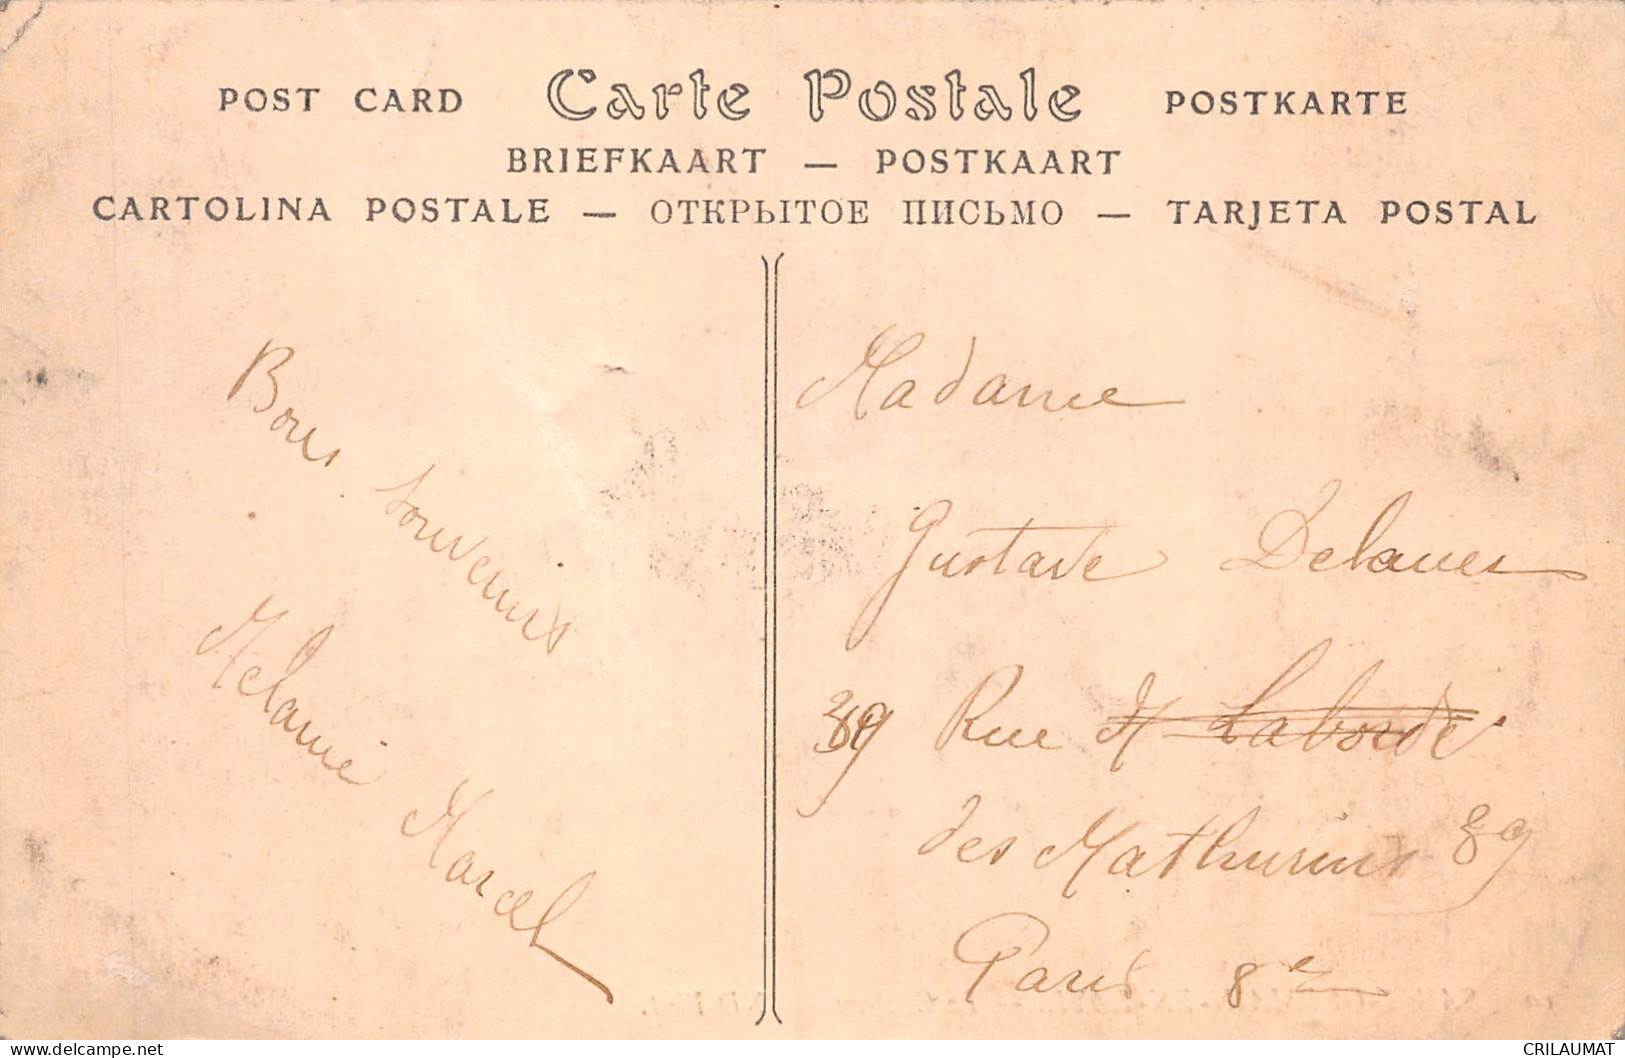 POST CARD Carte Postale POSTKARTE
BRIEFKAART — POSTKAART
CARTOLINA POSTALE — ОТКРЫТОЕ ПИСЬМО — TARJETA POSTAL
Bons souvenirs
Melanie Marcel
Madame
Gustave
Rue Laborde
des Mathurins 89
Paris 8e
CRILAUMAT